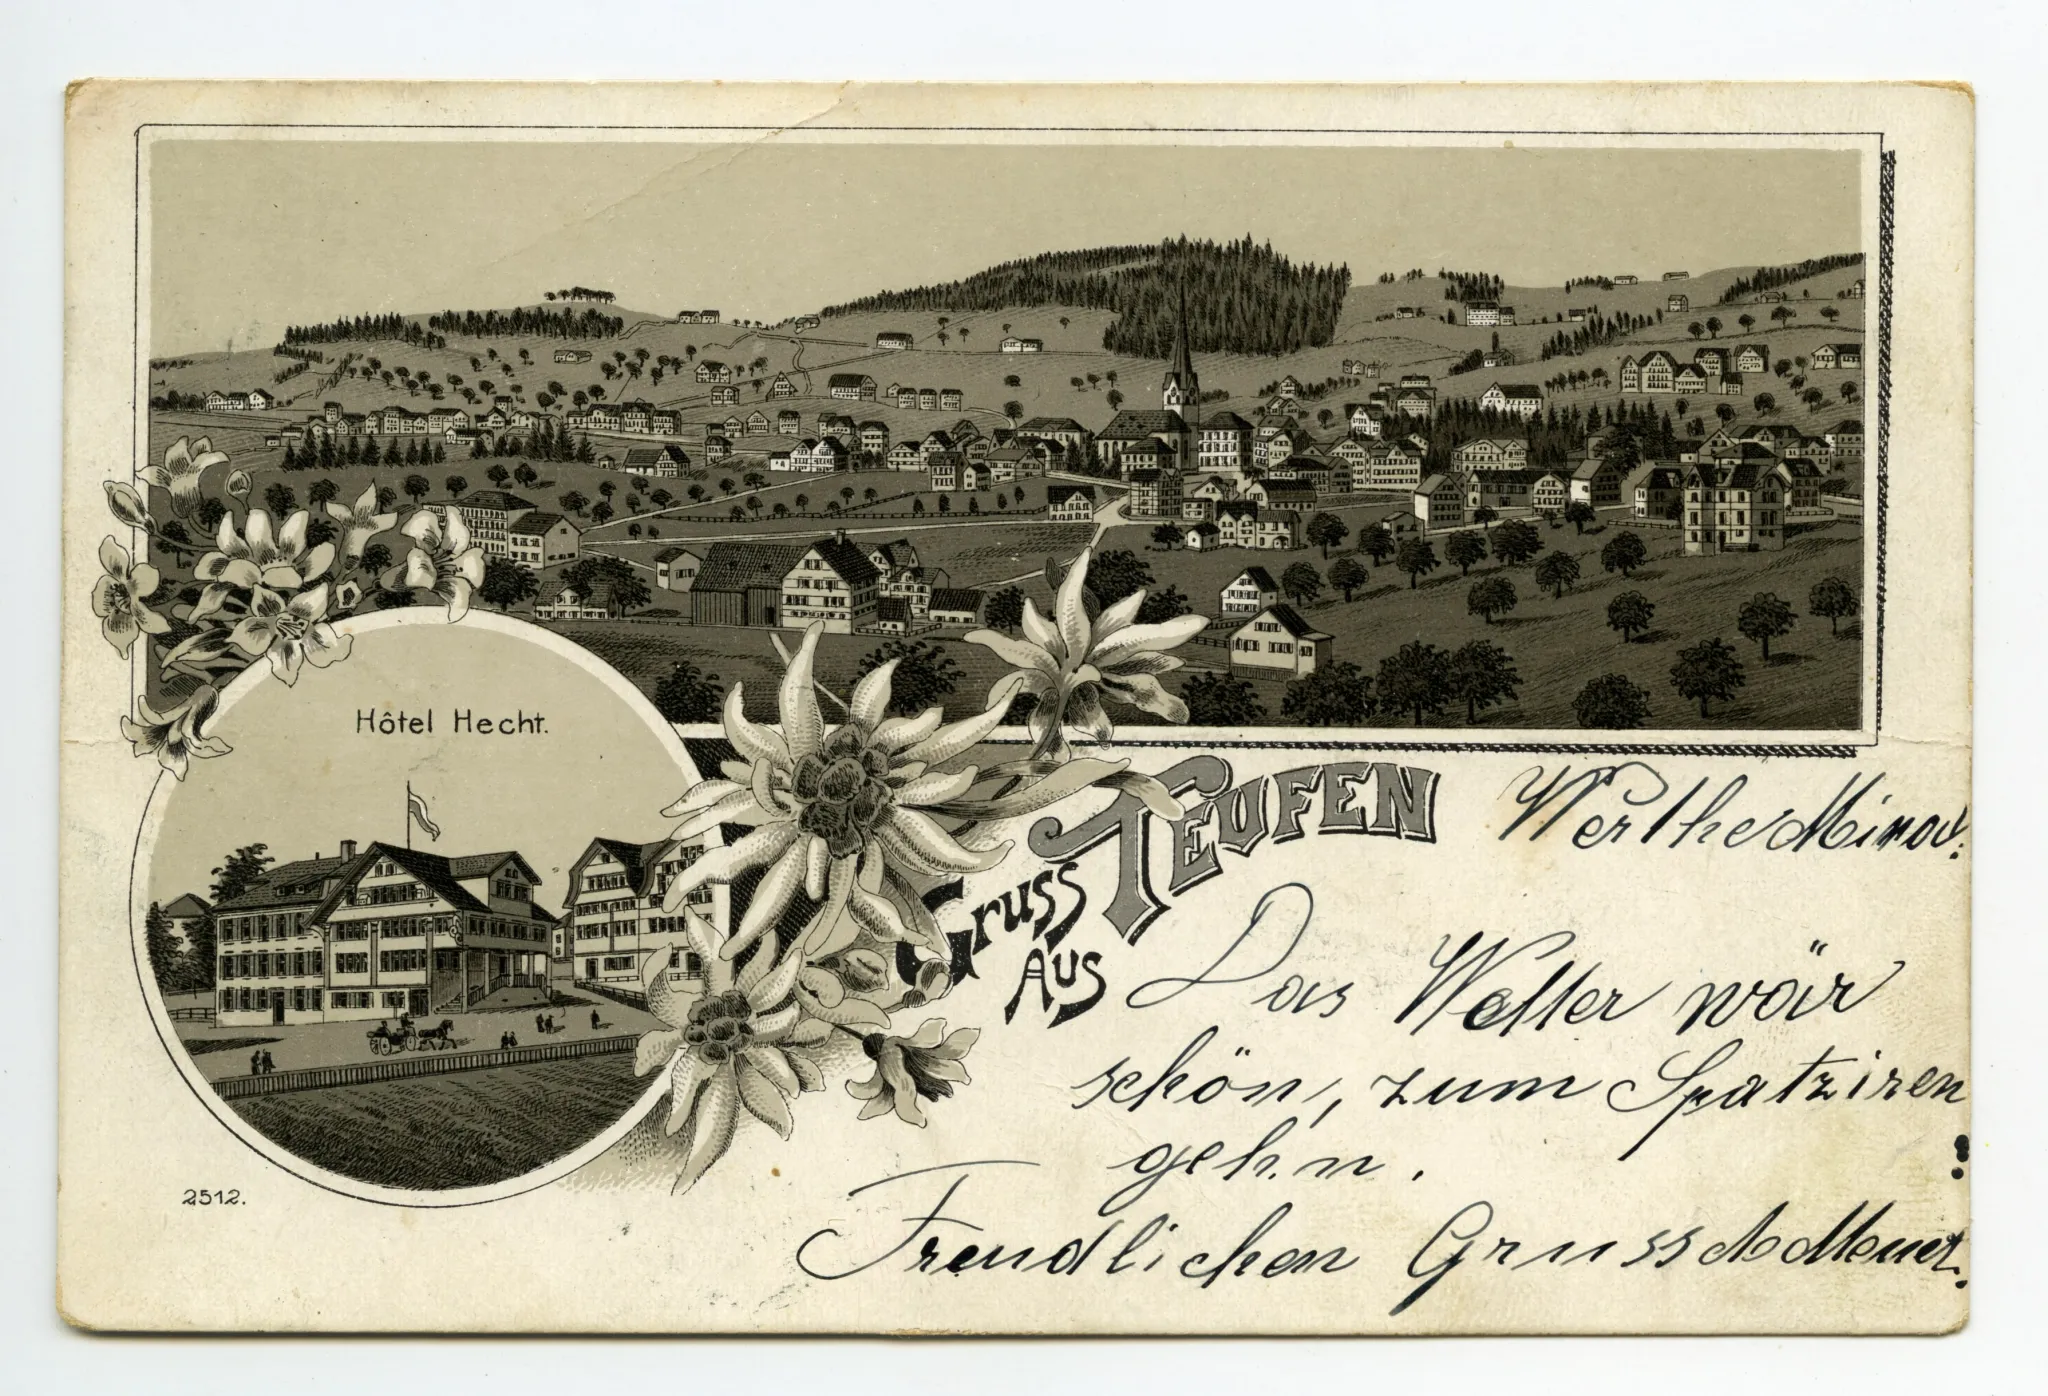 Hôtel Hecht.
Gruss
Aus
TEUFEN
Werthe
Das Wetter wär
schön, zum Spatziren
gehn.
Freudlichen Gruss
2512.